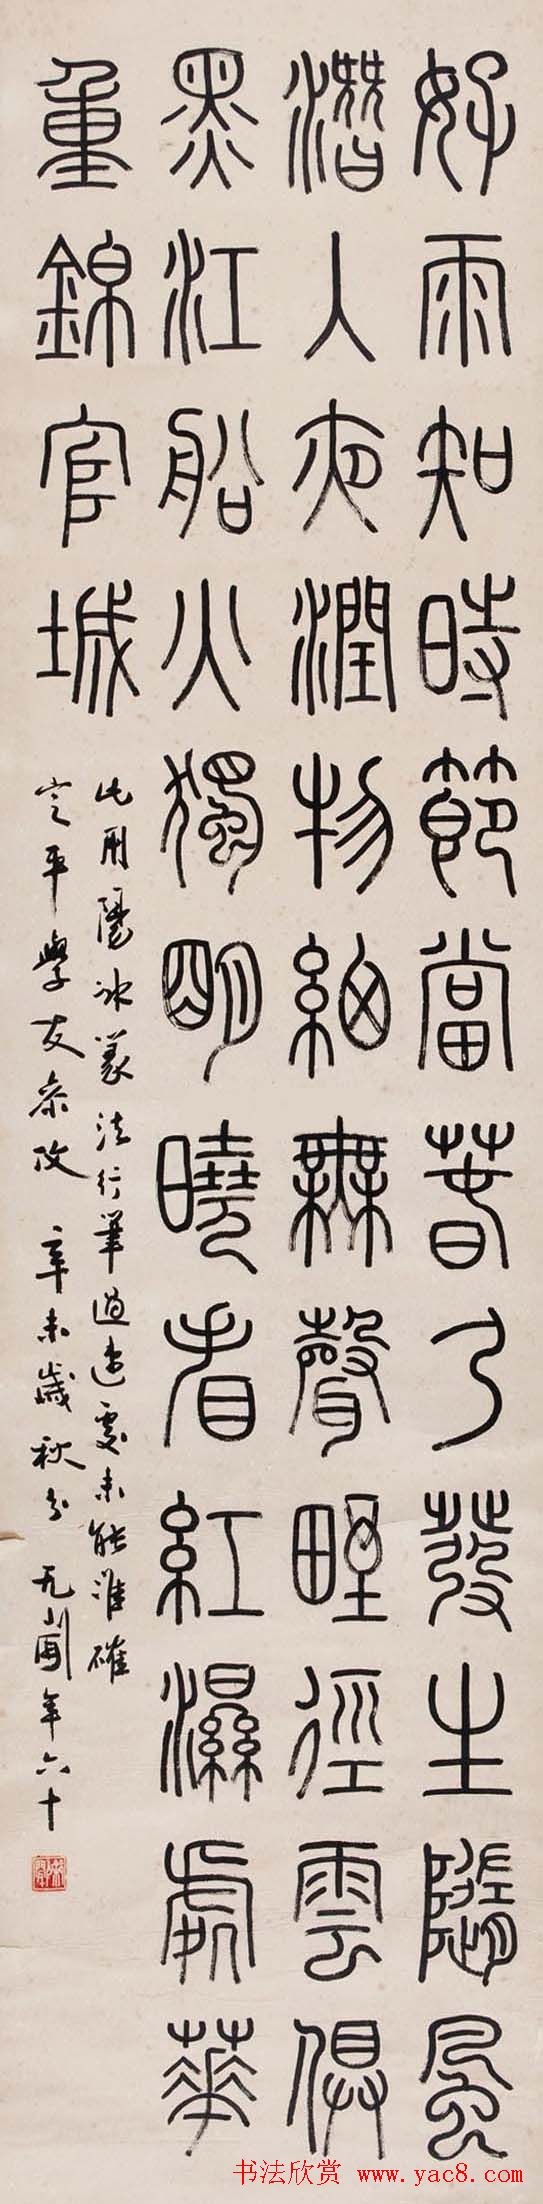 好雨知時節當春乃發生隨風
潛入夜潤物細無聲野徑雲俱
黑江船火獨明曉看紅濕處華
重錦官城
此用陽冰篆法行筆過速處未能准確
定平學友參攷 辛未歲秋分 无聞年六十
书法欣赏 www.yac8.com